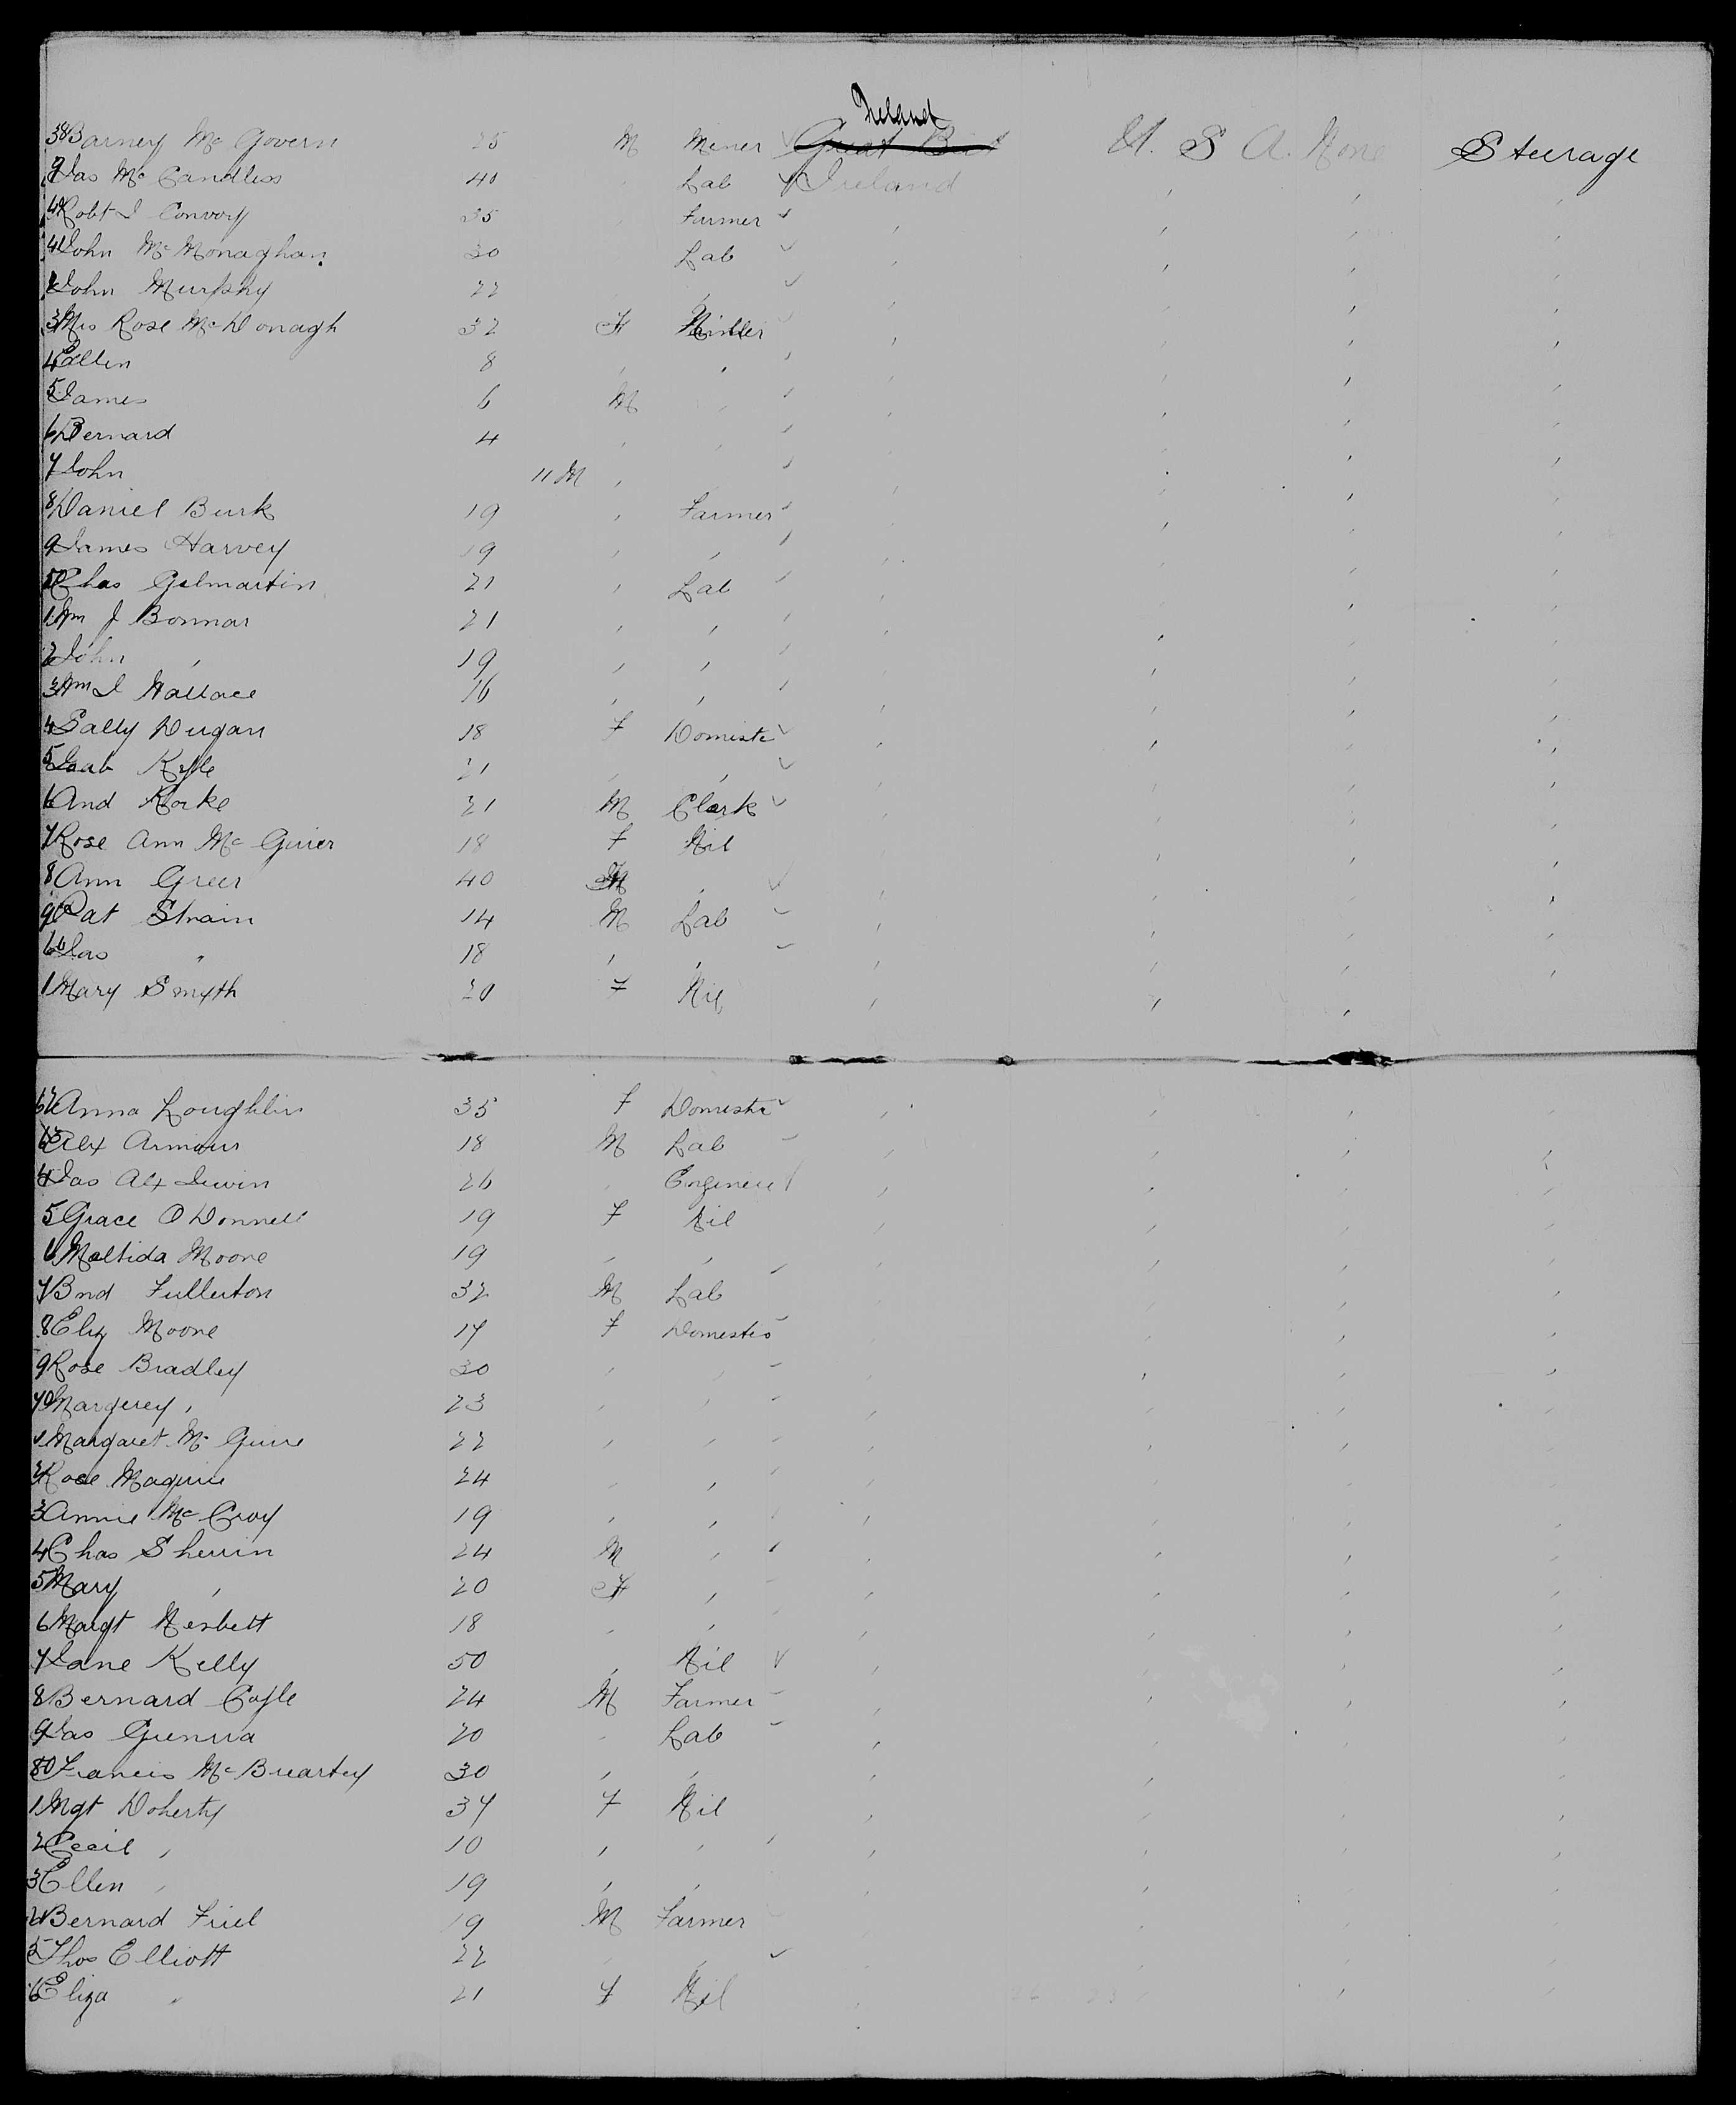 Ireland
38 Barney Mc Govern 25 M Miner ✓ Great Brit U. S A. None Steerage
9 Jas Mc Candless 40 Lab ✓ Ireland
40 Robt J Convoy 35 Farmer ✓
41 John McMonaghan 30 Lab ✓
2 John Murphy 22 ✓
3 Mrs Rose McDonagh 32 F
4 Ellen 8
5 James 6 M
6 Bernard 4
7 John 11 M
8 Daniel Burk 19 Farmer
9 James Harvey 19
50 Chas Gilmartin 21 Lab
1 Wm J Bonnar 21
2 John " 19
3 Wm J Wallace 16
4 Sally Dugan 18 F Domestc ✓
5 Kyle 21 ✓
6 And Rorke 21 M Clerk ✓
7 Rose Ann Mc Guier 18 F Nil
8 Ann Greer 40 ✓
9 Pat Strain 14 M Lab
60 Jas " 18
1 Mary Smyth 20 F Nil
62 Anna Loughlin 35 F Domestc ✓
63 Alex Armour 18 M Lab
4 Jas Alx Irwin 26 Engineer
5 Grace O Donnell 19 F Nil
6 Maltida Moore 19
7 Bnd Fullerton 32 M Lab
8 Eliz Moore 17 F Domestic
9 Rose Bradley 30
70 Margerey " 23
1 Margaret Mc Guire 22
2 Rose Maguire 24
3 Annie McCroy 19
4 Chas Sherrin 24 M
5 Mary " 20 F
6 Margt Nesbett 18
7 Jane Kelly 50 Nil ✓
8 Bernard Coyle 24 M Farmer
9 Jas 20 Lab
80 Francis McBrearty 30
1 Mgt Doherty 37 F Nil
2 Cecil " 10
3 Ellen " 19
4 Bernard Friel 19 M Farmer
5 Thos Elliott 22 ✓
6 Eliza " 21 F Nil